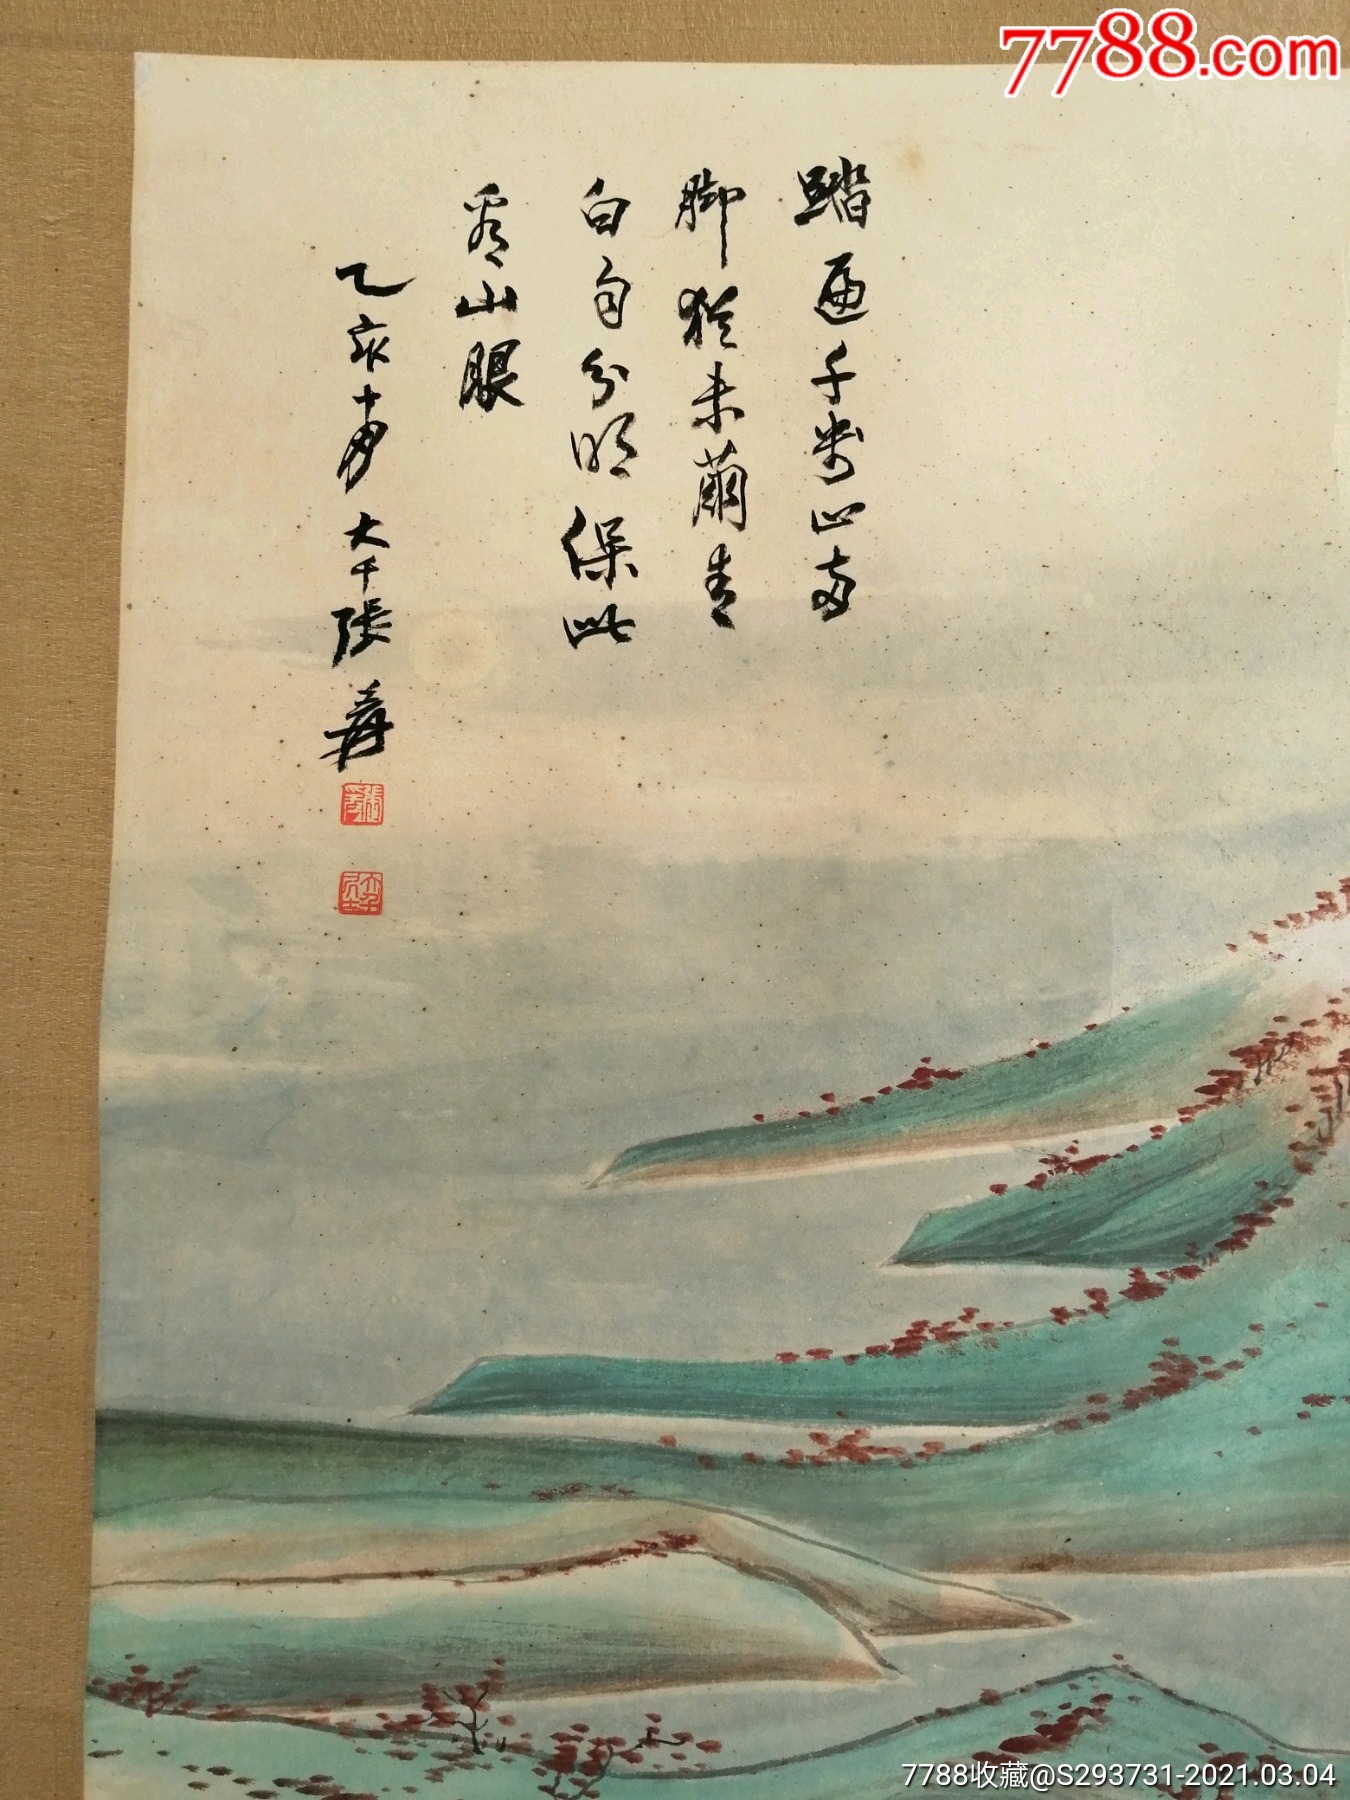 7788.com
踏遍千萬山兩
脚猶未繭青
白自分明保此
看山眼
乙亥十月 大千張爰
張爰
7788收藏@S293731-2021.03.04